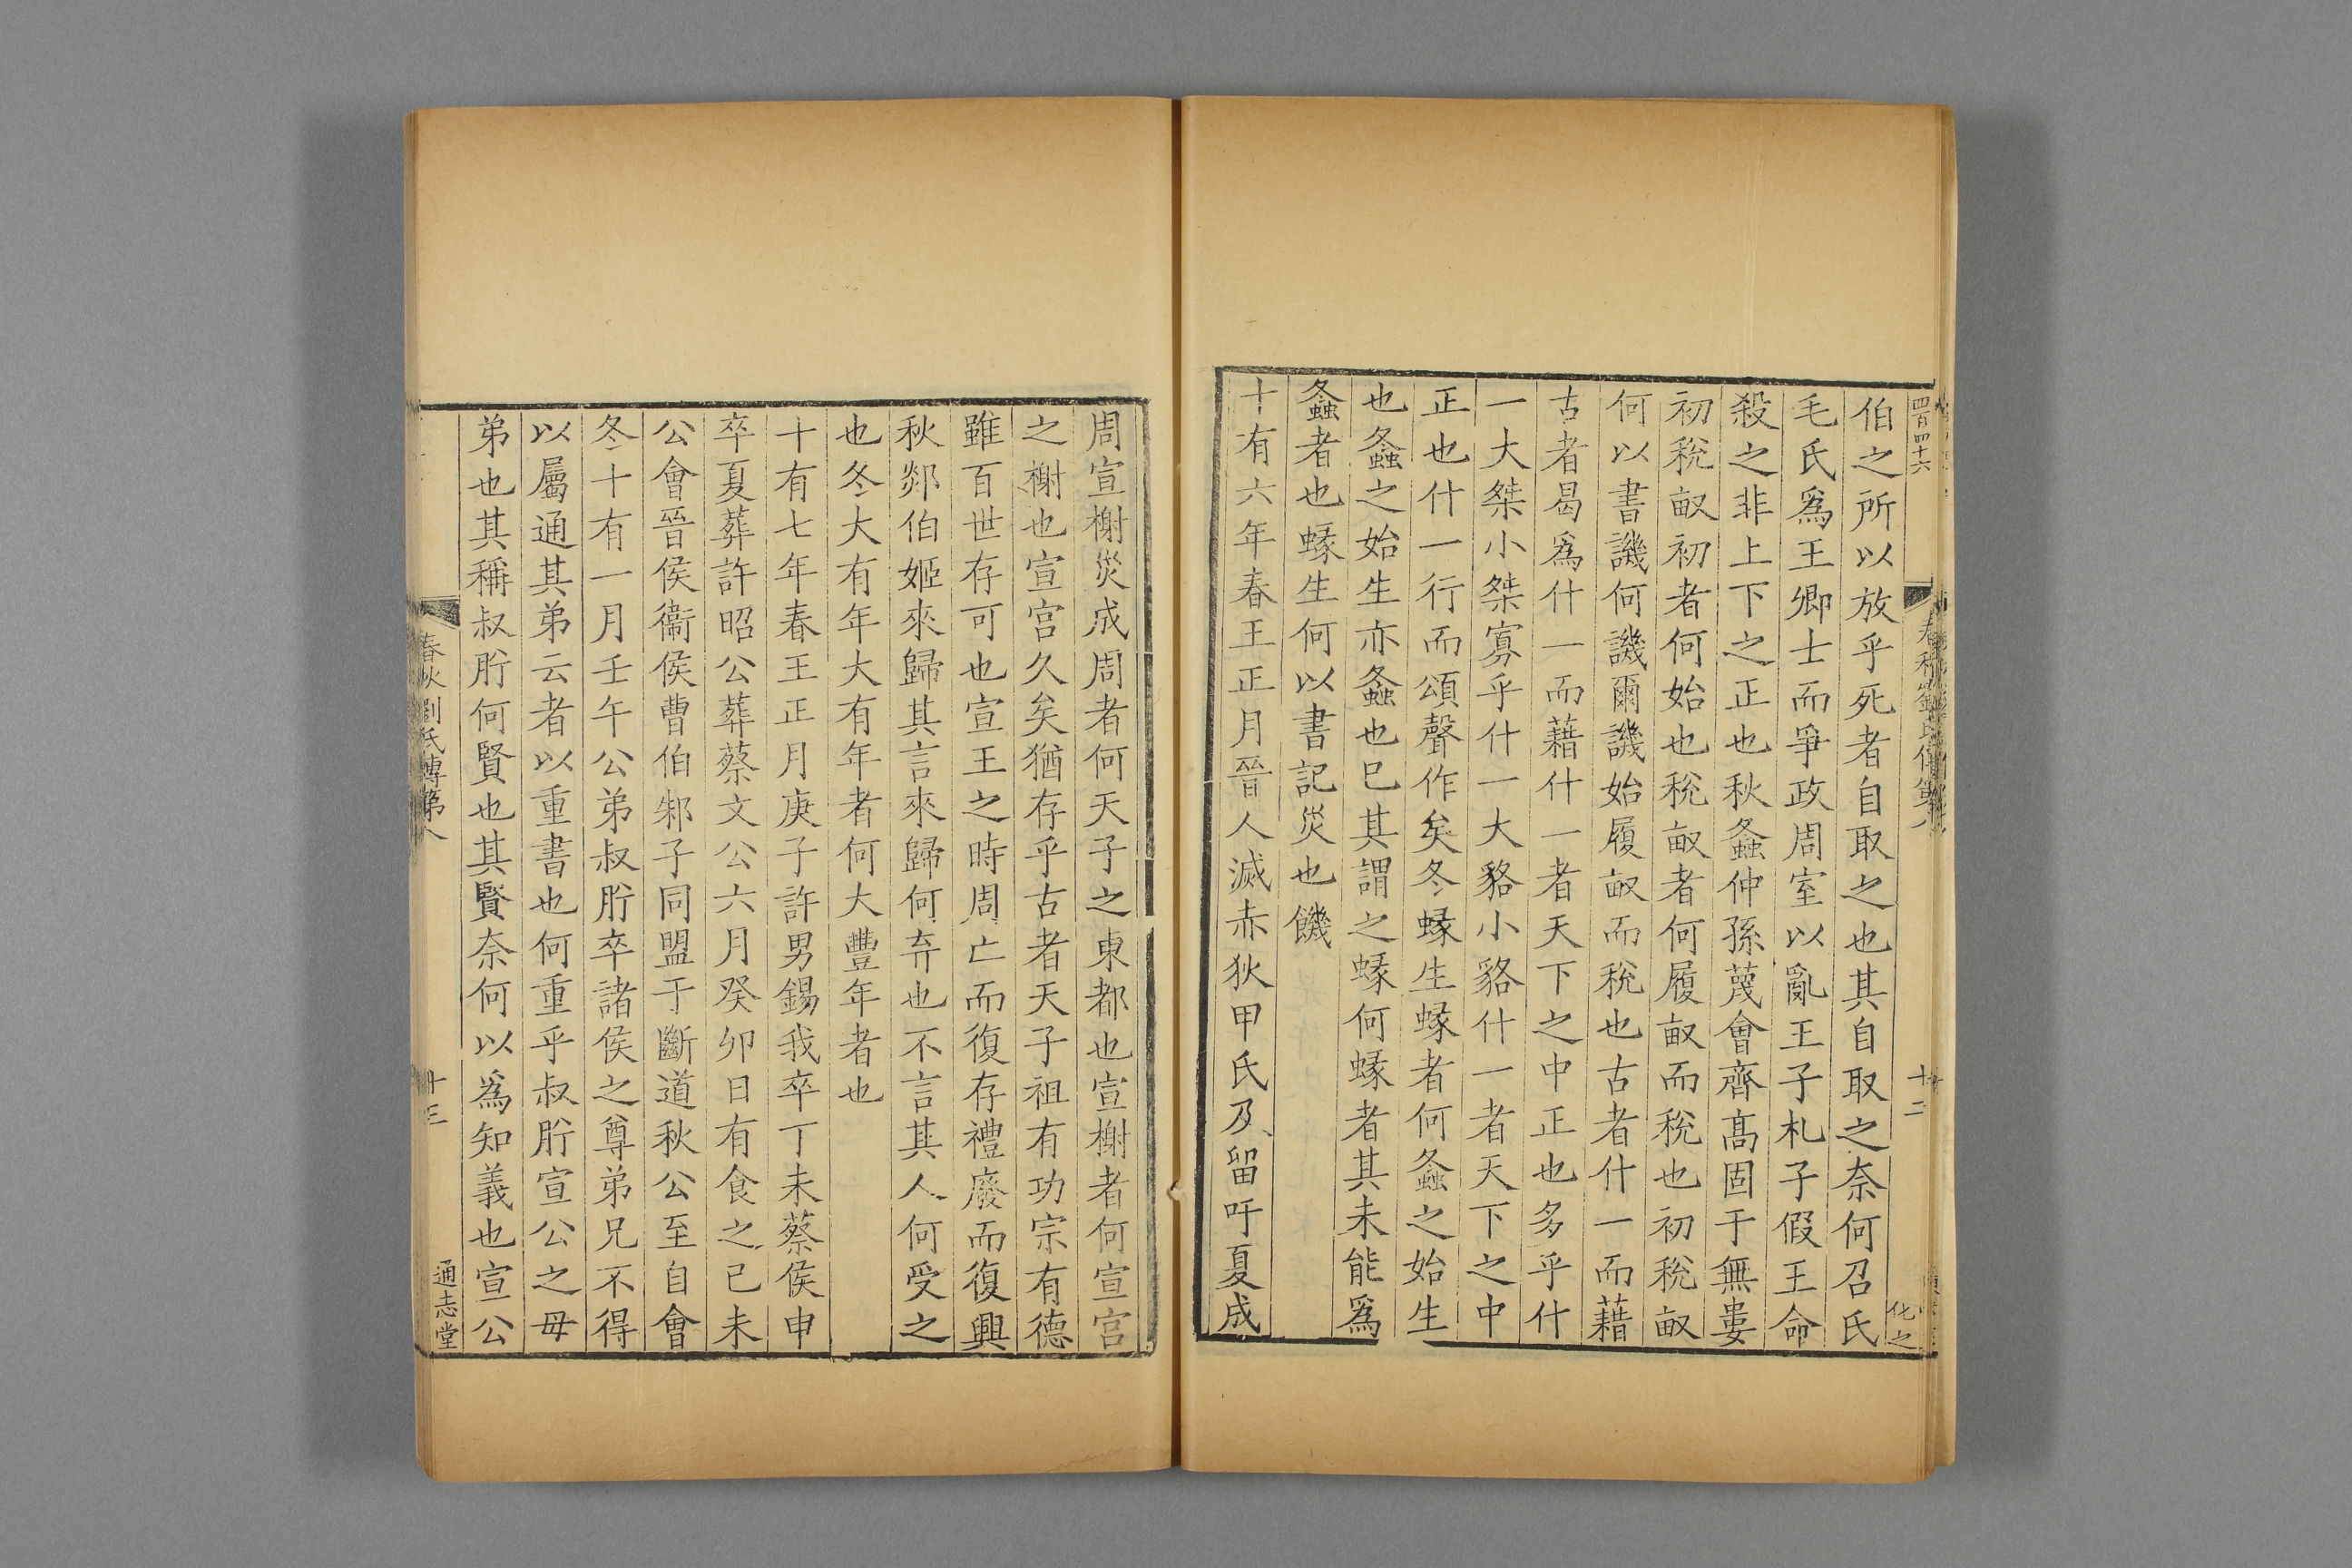 四百四十六
伯之所以放乎死者自取之也其自取之奈何召氏
毛氏爲王卿士而爭政周室以亂王子札子假王命
殺之非上下之正也秋螽仲孫蔑會齊髙固于無婁
初稅畝初者何始也稅畝者何履畝而稅也初稅畝
何以書譏何譏爾譏始履畝而稅也古者什一而藉
古者曷爲什一而藉什一者天下之中正也多乎什
一大桀小桀寡乎什一大貉小貉什一者天下之中
正也什一行而頌聲作矣冬蝝生蝝者何螽之始生
也螽之始生亦螽也已其謂之蝝何蝝者其未能爲
螽者也蝝生何以書記災也饑
十有六年春王正月晉人滅赤狄甲氏及留吁夏成
周宣榭災成周者何天子之東都也宣榭者何宣宫
之榭也宣宫久矣猶存乎古者天子祖有功宗有德
雖百世存可也宣王之時周亡而復存禮廢而復興
秋郯伯姬來歸其言來歸何弃也不言其人何受之
也冬大有年大有年者何大豐年者也
十有七年春王正月庚子許男錫我卒丁未蔡侯申
卒夏葬許昭公葬蔡文公六月癸卯日有食之己未
公會晉侯衞侯曹伯邾子同盟于斷道秋公至自會
冬十有一月壬午公弟叔肸卒諸侯之尊弟兄不得
以屬通其弟云者以重書也何重乎叔肸宣公之母
弟也其稱叔肸何賢也其賢奈何以爲知義也宣公
春秋劉氏傳第八
十三
通志堂